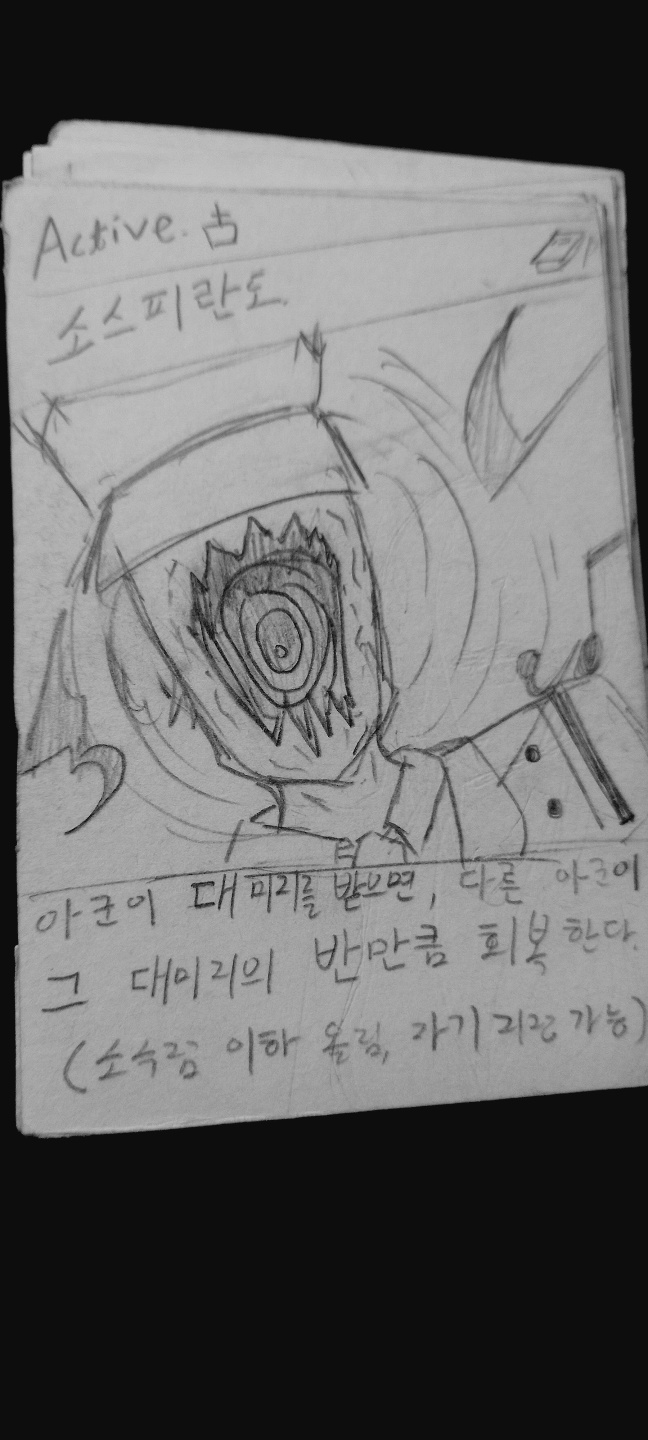 Active. 占
소스피란도.
아군이 대미리를 받으면, 다른 아군이
그 대미리의 반만큼 회복한다.
(소숫점 이하 올림, 자기 지정 가능)